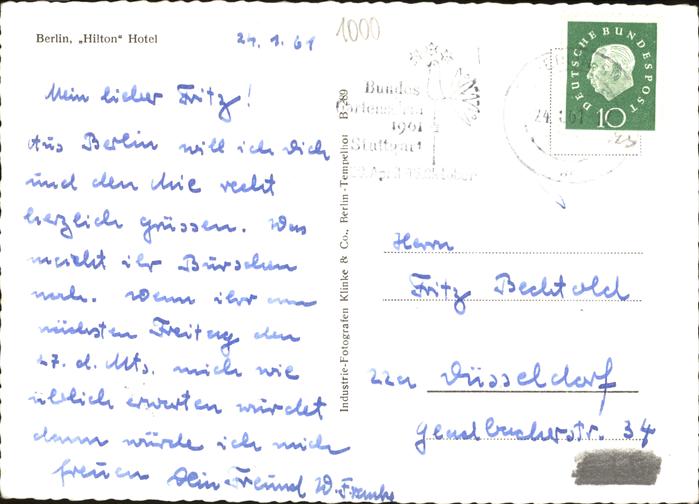 Berlin, „Hilton" Hotel
24.1.61
1000
Mein lieber Fritz!
Aus Berlin will ich Dich
und den Mie recht
herzlich grüssen. Was
macht ihr Burschen
noch. Wenn ihr am
nächsten Freitag den
27. d. Mts. mich wie
üblich erwarten würdet
dann würde ich mich
freuen Dein Freund W. Franke
Industrie-Fotografen Klinke & Co., Berlin-Tempelhof B-289
Bundes
Gartenschau
1961
Stuttgart
24. 1.61
DEUTSCHE BUNDESPOST
10
Herrn
Fritz Bechtold
22a Düsseldorf
34